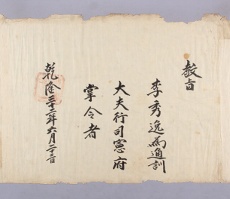 教旨
李秀逸為通訓
大夫行司憲府
掌令者
乾隆三十二年六月二十日